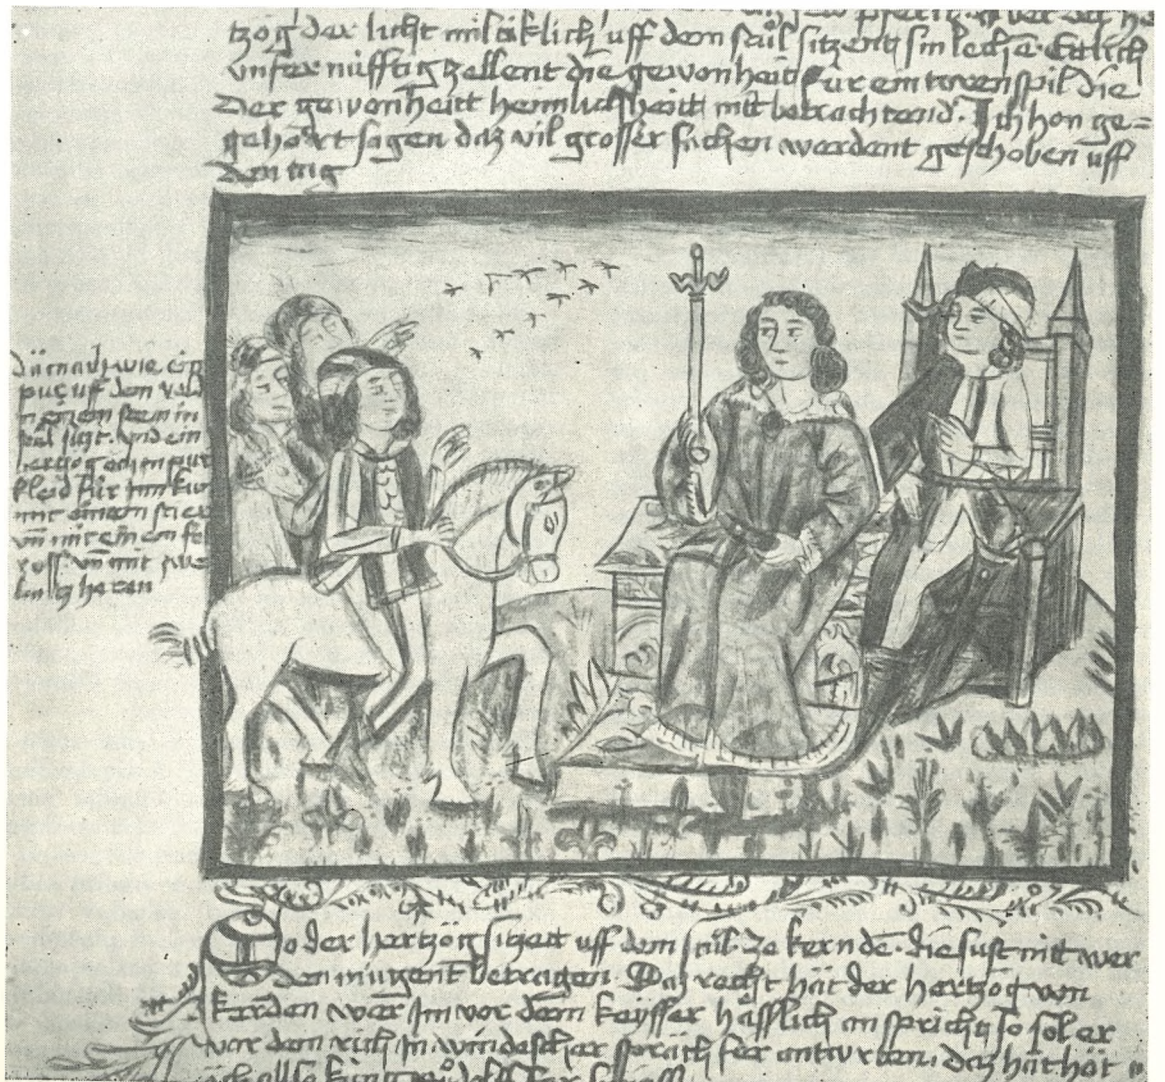 tzog der licht miltiklich uff dem stůl sitzent sin lechē. Ettlich
unfernüfftig zellent die gewonheit für ein toren spil die
Der gewonheitt heimlichheitt nitt betrachtend. Ich hon ge=
gehört sagen daz vil grosser sachen werdent geschoben uff
Den tag
Darnach wie ein
pur uff dem
stül sitzt. und ein
hertzog och in pur
kleid für inn kun
mit einem stier
un̄ mit einem fe
ross. un̄ mit zwe
herren
So der hertzog sitzett uff dem stůl. ze kerndē. die sust nitt wer
Den mugent betragen. Daz recht hät der hertzog von
kernden wer im vor dem keysser hässlich an spricht so sol er
vor dem rich in windescher sprách fer antwurten. Daz hät